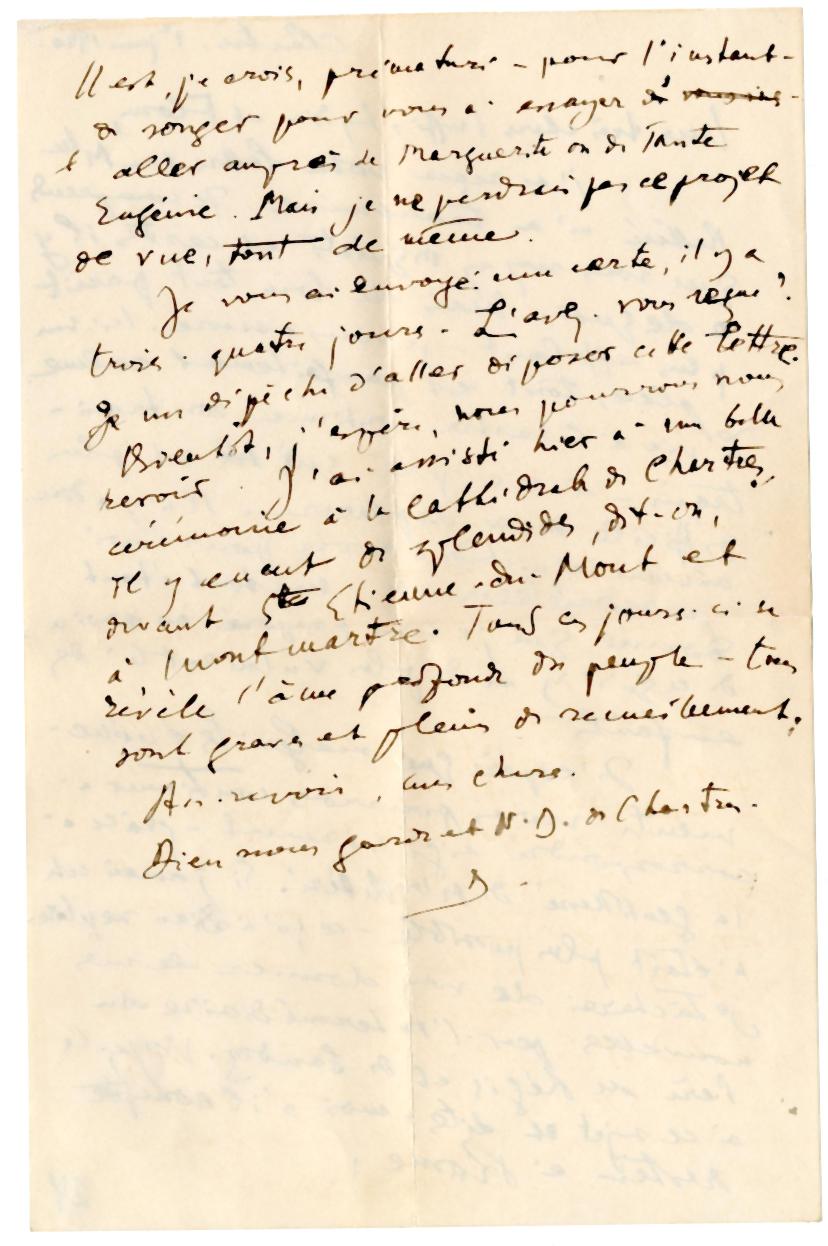 Il est, je crois, prématuré – pour l'instant –
de songer pour vous à essayer d'
aller auprès de Marguerite ou de Tante
Eugénie. Mais je ne perdrai pas ce projet
de vue, tout de même.
Je vous ai envoyé une carte, il y a
trois-quatre jours – L'avez-vous reçue ?
Je me dépêche d'aller déposer cette lettre.
Bientôt, j'espère, nous pourrons nous
revoir. J'ai assisté hier à une belle
cérémonie à la Cathédrale de Chartres,
il y en eut de splendides, dit-on,
devant Ste Etienne-du-Mont et
à Montmartre. Tous ces jours-ci se
révèle l'âme profonde du peuple – tous
sont graves et pleins de recueillement.
Au revoir, ma chère.
Dieu nous garde et N. D. de Chartres.
D.